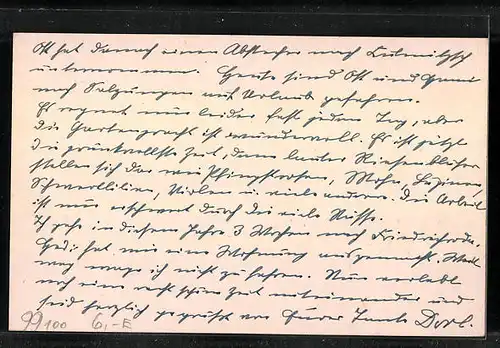 Ott hat danach einen Abstecher nach
unternommen. Heute sind Ott und
nach Salzungen auf Urlaub gefahren.
Es regnet nun leider fast jeden Tag, aber
die Gartenpracht ist wundervoll. Es ist jetzt
die prunkvollste Zeit, denn lauter Riesenblüher
stellen sich das wie Pfingstrosen, Mohn, Lupinen,
Schwertlilien, Violen u. viele andere. Die Arbeit
ist nun erschwert durch die viele Nässe.
Ich gehe in diesem Jahre 3 Wochen nach Friedrichroda.
hat mir eine Wohnung ausgemacht. Weit
weg wage ich nicht zu fahren. Nun verlebt
noch eine recht schöne Zeit miteinander und
seid herzlich gegrüßt von Eurer Tante Dorl.
99100 6,-E